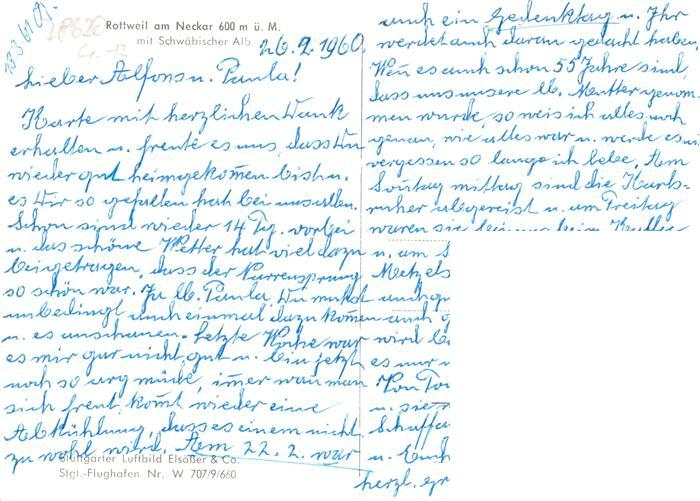 Rottweil am Neckar 600 m ü. M.
mit Schwäbischer Alb
26.2.1960.
Lieber Alfons u. Paula!
Karte mit herzlichen Dank
erhalten u. freute es uns, dass Du
wieder gut heimgekom̄en bist u.
es Dir so gefallen hat bei uns allen.
Schon sind wieder 14 Tg. vorbei
u. das schöne Wetter hat viel dazu
beigetragen, dass der Narrensprung
so schön war. Ja lb. Paula, Du must
unbedingt auch einmal dazu kom̄en
u. es anschauen. Letzte Woche war
es mir gar nicht gut u. bin jetzt
noch so arg müde, im̄er wan man
sich freut, kom̄t wieder eine
Abkühlung, das es einem nicht
zu wohl wird. Am 22.2. war
Stuttgarter Luftbild Elsäßer & Co.
Stgt.-Flughafen Nr. W 707/9/660
auch ein Gedenktag u. Ihr
werdet auch daran gedacht haben.
Wen es auch schon 55 Jahre sind,
dass uns unsere lb. Mutter genom-
men wurde, so weis ich alles noch
genau, wie alles war u. werde es nie
vergessen so lange ich lebe. Am
Sontag mittag sind die Karls-
ruher abgereist u. am Freitag
waren sie
u. am S
Metzels
auch
auch
wird
es nur
Von
u. sie
Schaffa
u. Euch
herzl. gr